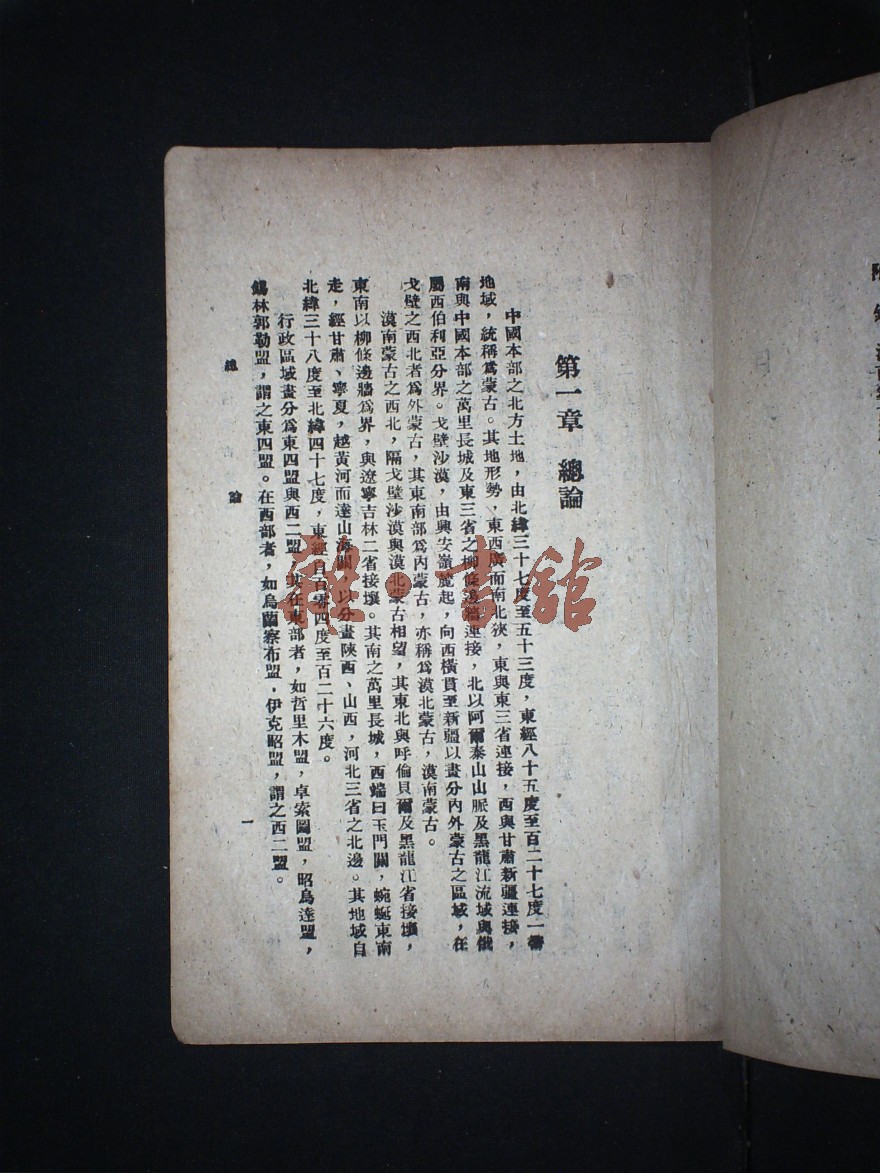 第一章　總論
中國本部之北方土地，由北緯三十七度至五十三度，東經八十五度至百二十七度一帶
地域，統稱爲蒙古。其地形勢、東西廣而南北狹，東與東三省連接，西與甘肅新疆連接，
南與中國本部之萬里長城及東三省之柳條邊牆連接，北以阿爾泰山山脈及黑龍江流域與俄
屬西伯利亞分界。戈壁沙漠，由興安嶺麓起，向西橫貫至新疆以畫分內外蒙古之區域，在
戈壁之西北者爲外蒙古，其東南部爲內蒙古，亦稱爲漠北蒙古，漠南蒙古。
漠南蒙古之西北，隔戈壁沙漠與漠北蒙古相望，其東北與呼倫貝爾及黑龍江省接壤，
東南以柳條邊牆爲界，與遼寧吉林二省接壤。其南之萬里長城，西端曰玉門關，蜿蜒東南
走，經甘肅、寧夏，越黃河而達山海關，以分畫陝西、山西，河北三省之北邊。其地域自
北緯三十八度至北緯四十七度，東經自百零四度至百二十六度。
行政區域畫分爲東四盟與西二盟，其在東部者，如哲里木盟，卓索圖盟，昭烏達盟，
錫林郭勒盟，謂之東四盟。在西部者，如烏蘭察布盟，伊克昭盟，謂之西二盟。
總　論
一
雜·書館